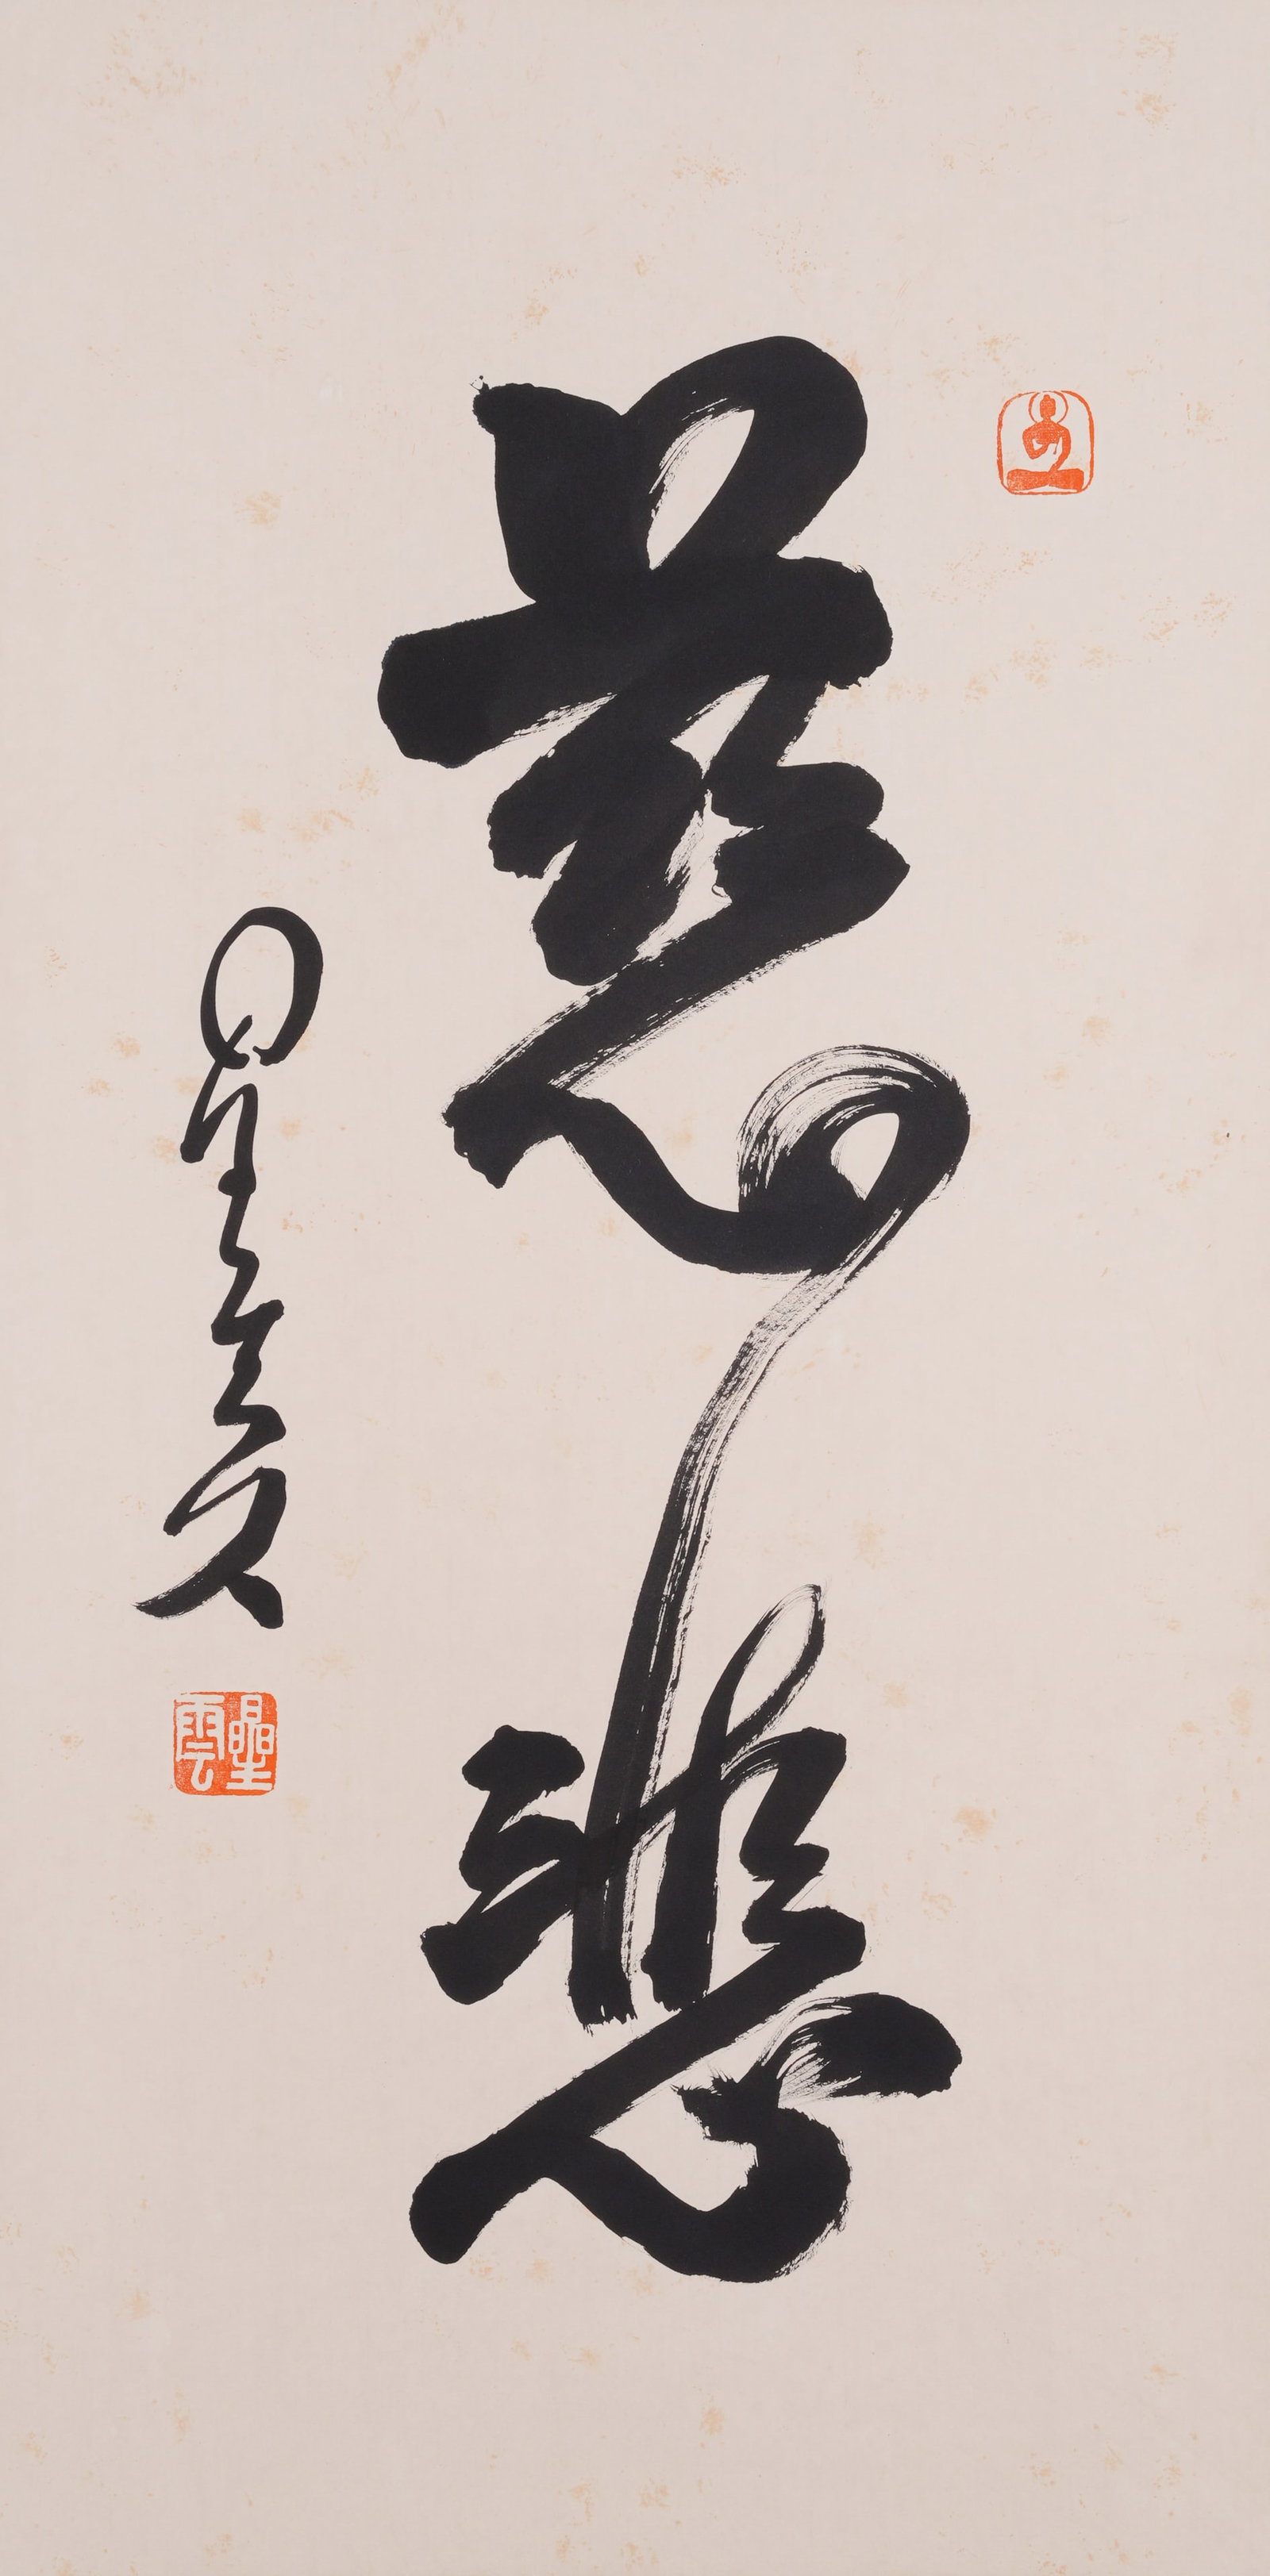 慈悲
星雲
星雲